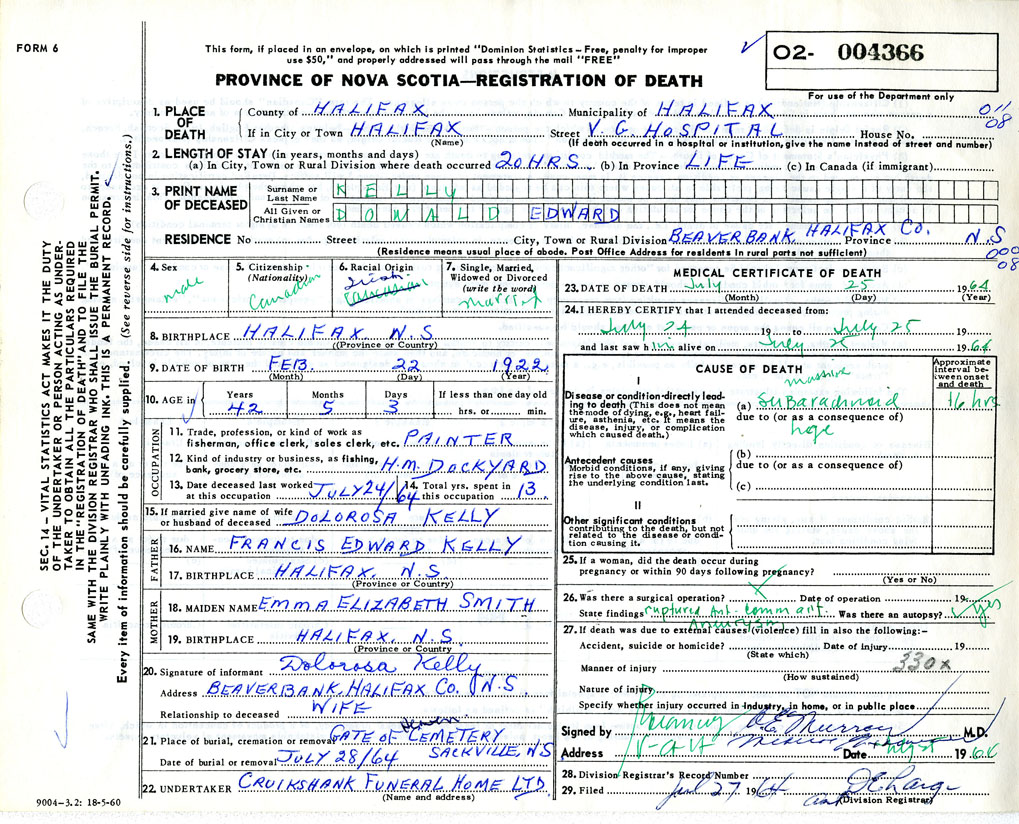 FORM 6
This form, if placed in an envelope, on which is printed "Dominion Statistics – Free, penalty for improper
use $50," and properly addressed will pass through the mail "FREE"
O2- 004366
PROVINCE OF NOVA SCOTIA—REGISTRATION OF DEATH
For use of the Department only
011
08
1. PLACE OF DEATH
County of HALIFAX Municipality of HALIFAX
If in City or Town HALIFAX Street V. G. HOSPITAL House No.
(Name) (If death occurred in a hospital or institution, give the name instead of street and number)
2. LENGTH OF STAY (in years, months and days)
(a) In City, Town or Rural Division where death occurred 20 HRS. (b) In Province LIFE (c) In Canada (if immigrant)
3. PRINT NAME OF DECEASED
Surname or Last Name KELLY
All Given or Christian Names DONALD EDWARD
RESIDENCE No Street City, Town or Rural Division BEAVERBANK, HALIFAX Co. Province N.S
(Residence means usual place of abode. Post Office Address for residents in rural parts not sufficient)
000
08
4. Sex
male
5. Citizenship (Nationality)
Canadian
6. Racial Origin
Irish
7. Single, Married, Widowed or Divorced (write the word)
married
8. BIRTHPLACE HALIFAX N.S
(Province or Country)
9. DATE OF BIRTH FEB. 22 1922
(Month) (Day) (Year)
10. AGE in
Years Months Days If less than one day old
42 5 3 hrs. or min.
OCCUPATION
11. Trade, profession, or kind of work as
fisherman, office clerk, sales clerk, etc. PAINTER
12. Kind of industry or business, as fishing,
bank, grocery store, etc. H.M. DOCKYARD
13. Date deceased last worked at this occupation JULY 24/64
14. Total yrs. spent in this occupation 13
15. If married give name of wife
or husband of deceased DOLOROSA KELLY
FATHER
16. NAME FRANCIS EDWARD KELLY
17. BIRTHPLACE HALIFAX, N.S
(Province or Country)
MOTHER
18. MAIDEN NAME EMMA ELIZABETH SMITH
19. BIRTHPLACE HALIFAX, N.S
(Province or Country
20. Signature of informant Dolorosa Kelly
Address BEAVERBANK, HALIFAX Co. N.S.
Relationship to deceased WIFE
21. Place of burial, cremation or removal GATE OF Heaven CEMETERY
SACKVILLE, N.S
Date of burial or removal JULY 28/64
22. UNDERTAKER CRUIKSHANK FUNERAL HOME LTD
(Name and address)
9004-3.2: 18-5-60
MEDICAL CERTIFICATE OF DEATH
23. DATE OF DEATH July 25 1964
(Month) (Day) (Year)
24. I HEREBY CERTIFY that I attended deceased from:
July 24 19 to July 25 19
and last saw him alive on July 25 1964
CAUSE OF DEATH
Approximate interval between onset and death
I
Disease or condition directly leading to death (This does not mean the mode of dying, e.g., heart failure, asthenia, etc. It means the disease, injury, or complication which caused death.)
massive
(a) Subarachnoid 16 hrs
due to (or as a consequence of)
hge
Antecedent causes
Morbid conditions, if any, giving rise to the above cause, stating the underlying condition last.
(b)
due to (or as a consequence of)
(c)
II
Other significant conditions
contributing to the death, but not related to the disease or condition causing it.
25. If a woman, did the death occur during
pregnancy or within 90 days following pregnancy?
(Yes or No)
26. Was there a surgical operation? X Date of operation 19
State findings ruptured Ant. Comm ant. Aneurysm Was there an autopsy? yes
27. If death was due to external causes (violence) fill in also the following:–
Accident, suicide or homicide? Date of injury 19
(State which)
330x
Manner of injury
(How sustained)
Nature of injury
Specify whether injury occurred in Industry, in home, or in public place
Signed by Murray M.D.
Address Date 19
28. Division Registrar's Record Number
29. Filed Jul 27 1964
(Division Registrar)
SEC. 14 – VITAL STATISTICS ACT MAKES IT THE DUTY
OF THE UNDERTAKER OR PERSON ACTING AS UNDER-
TAKER TO OBTAIN ALL THE PARTICULARS REQUIRED
IN THE "REGISTRATION OF DEATH" AND TO FILE THE
SAME WITH THE DIVISION REGISTRAR WHO SHALL ISSUE THE BURIAL PERMIT.
WRITE PLAINLY WITH UNFADING INK. THIS IS A PERMANENT RECORD.
Every item of information should be carefully supplied. (See reverse side for instructions.)